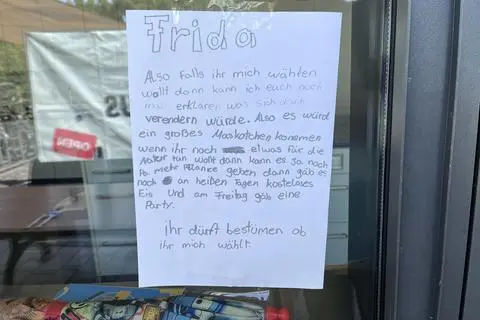 Frida
Also falls ihr mich wählten
wollt dann kann ich euch noch
mal erklären was sich dann
verendern würde. Also es würd
ein großes Maskotchen kommen
wenn ihr noch etwas für die
Natur tun wollt dann kann es ja noch
Pa. mehr Pflanze geben dann gäb es
noch an heißen Tagen kosteloses
Eis Und am Freitag gäb eine
Party.
ihr dürft bestümen ob
ihr mich wählt.
OPEN